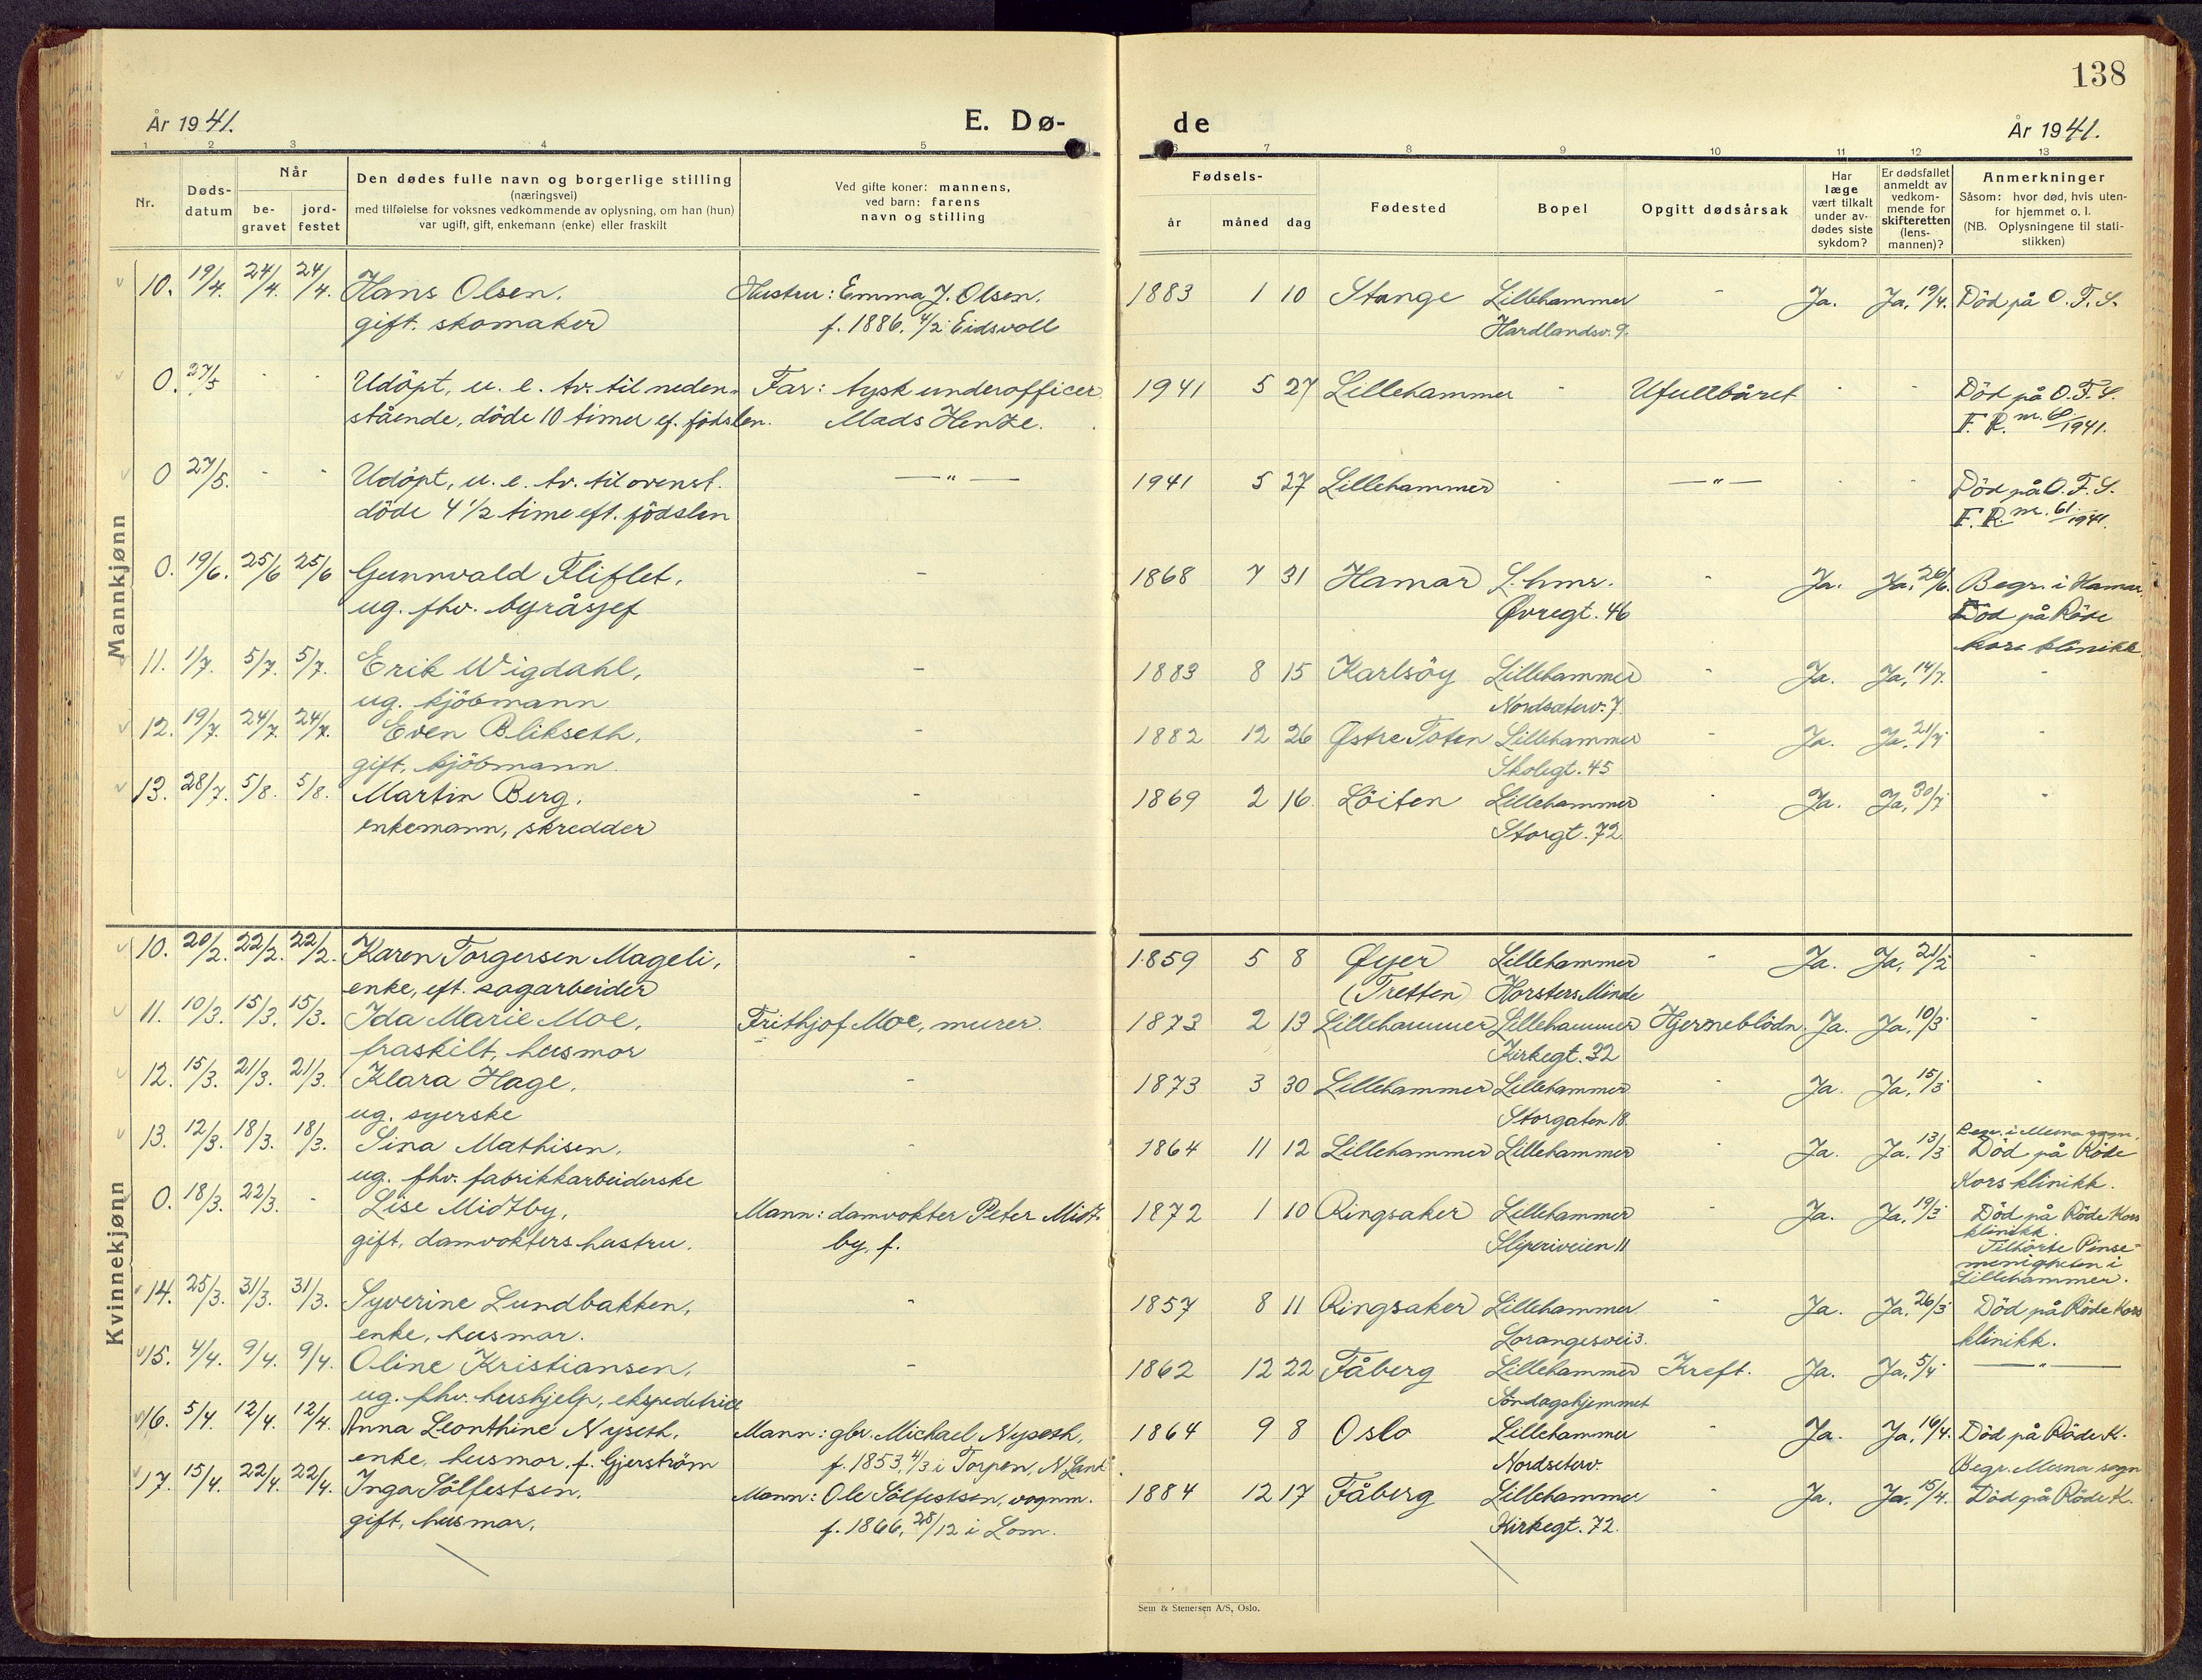 138
År 1941.
E. Dø-
de
År 1941.
1 2 3 4 5
6 7 8 9 10 11 12 13
Nr.
Døds-
datum
Når
be-
gravet
jord-
festet
Den dødes fulle navn og borgerlige stilling
(næringsvei)
med tilføielse for voksnes vedkommende av oplysning, om han (hun)
var ugift, gift, enkemann (enke) eller fraskilt
Ved gifte koner: mannens,
ved barn: farens
navn og stilling
Fødsels-
år måned dag
Fødested
Bopel
Opgitt dødsårsak
Har
læge
vært tilkalt
under av-
dødes siste
sykdom?
Er dødsfallet
anmeldt av
vedkom-
mende for
skifteretten
(lens-
mannen)?
Anmerkninger
Såsom: hvor død, hvis uten-
for hjemmet o. l.
(NB. Oplysningene til stati-
stikken)
Mannkjønn
10. 19/4. 24/4. 24/4. Hans Olsen, Hustru: Emma J. Olsen, 1883 1 10 Stange Lillehammer - Ja. Ja, 19/4. Död på O. F. S.
gift. skomaker f. 1886, 4/2 Eidsvoll Hardlandsv. 9.
0. 27/5 - - Udöpt, u. e. tv. til neden- Far: tysk underofficer 1941 5 27 Lillehammer - Ufullbåret - - Död på O. F. S.
stående, döde 10 timer ef. födslen. Mads Henze. F. R. nr. 60/1941.
0 27/5. - - Udöpt, u. e. tv. til ovenst. — " — 1941 5 27 Lillehammer - — " — - - Död på O. F. S.
döde 4 1/2 time eft. födslen F. R. nr. 61/1941.
0. 19/6. 25/6 25/6 Gunnvald Fliflet, - 1868 7 31 Hamar L.hmr. - Ja. Ja, 26/6. Begr. i Hamar.
ug. fhv. byråsjef Øvregt. 46 Död på Röde
Kors klinikk.
11. 1/7. 5/7. 5/7. Erik Wigdahl, - 1883 8 15 Karlsöy Lillehammer - Ja. Ja, 14/7. -
ug. kjöbmann Nordseterv. 7.
12. 19/7. 24/7. 24/7. Even Blikseth, - 1882 12 26 Østre Toten Lillehammer - Ja. Ja, 21/7 -
gift, kjöbmann. Skolegt. 45
13. 28/7. 5/8. 5/8. Martin Berg, - 1869 2 16 Löiten Lillehammer - Ja. Ja, 30/7 -
enkemann, skredder Storgt. 72.
Kvinnekjønn
10. 20/2. 22/2. 22/2. Karen Torgersen Mageli, - 1859 5 8 Øyer Lillehammer - Ja. Ja, 21/2 -
enke, eft. sagarbeider (Tretten) Horsters Minde
11. 10/3. 15/3. 15/3. Ida Marie Moe, Frithjof Moe, murer. 1873 2 13 Lillehammer Lillehammer Hjerneblödn. Ja. Ja, 10/3 -
fraskilt, husmor Kirkegt. 32
12. 15/3. 21/3. 21/3. Klara Hage, - 1873 3 30 Lillehammer Lillehammer - Ja. Ja, 15/3 -
ug. syerske Storgaten 18.
Begr. i Mesna sogn.
13. 12/3. 18/3. 18/3. Sina Mathisen, - 1864 11 12 Lillehammer Lillehammer - Ja. Ja, 13/3 Död på Röde
ug. fhv. fabrikkarbeiderske Kors klinikk.
0. 18/3. 22/3. - Lise Midtby, Mann: damvokter Peter Midt- 1872 1 10 Ringsaker Lillehammer - Ja. Ja, 19/3 Död på Röde Kors
gift, damvokters hustru. by, f. Sliperiveien 11 klinikk.
Tilhörte Pinse-
menigheten i
Lillehammer.
14. 25/3. 31/3. 31/3. Syverine Lundbakken, - 1857 8 11 Ringsaker Lillehammer - Ja. Ja, 26/3 Död på Röde Kors
enke, husmor. Lorangesvei 3. klinikk.
15. 4/4. 9/4. 9/4. Oline Kristiansen, - 1862 12 22 Fåberg Lillehammer Kreft. Ja. Ja, 5/4 — " —
ug. fhv. hushjelp, ekspeditrice Söndagshjemmet
16. 5/4. 12/4. 12/4. Anna Leonthine Nyseth, Mann: gbr. Michael Nyseth, 1864 9 8 Oslo Lillehammer - Ja. Ja, 16/4. Död på Röde K.
enke, husmor, f. Gjerström f. 1853, 4/3 i Torpen, N. Land. Nordseterv. Begr. Mesna sogn
17. 15/4. 22/4. 22/4. Inga Sölfestsen, Mann: Ole Sölfestsen, vognm. 1884 12 17 Fåberg Lillehammer - Ja. Ja, 15/4. Död på Röde K.
gift, husmor, f. 1866, 28/12 i Lom. Kirkegt. 72.
Sem & Stenersen A/S, Oslo.